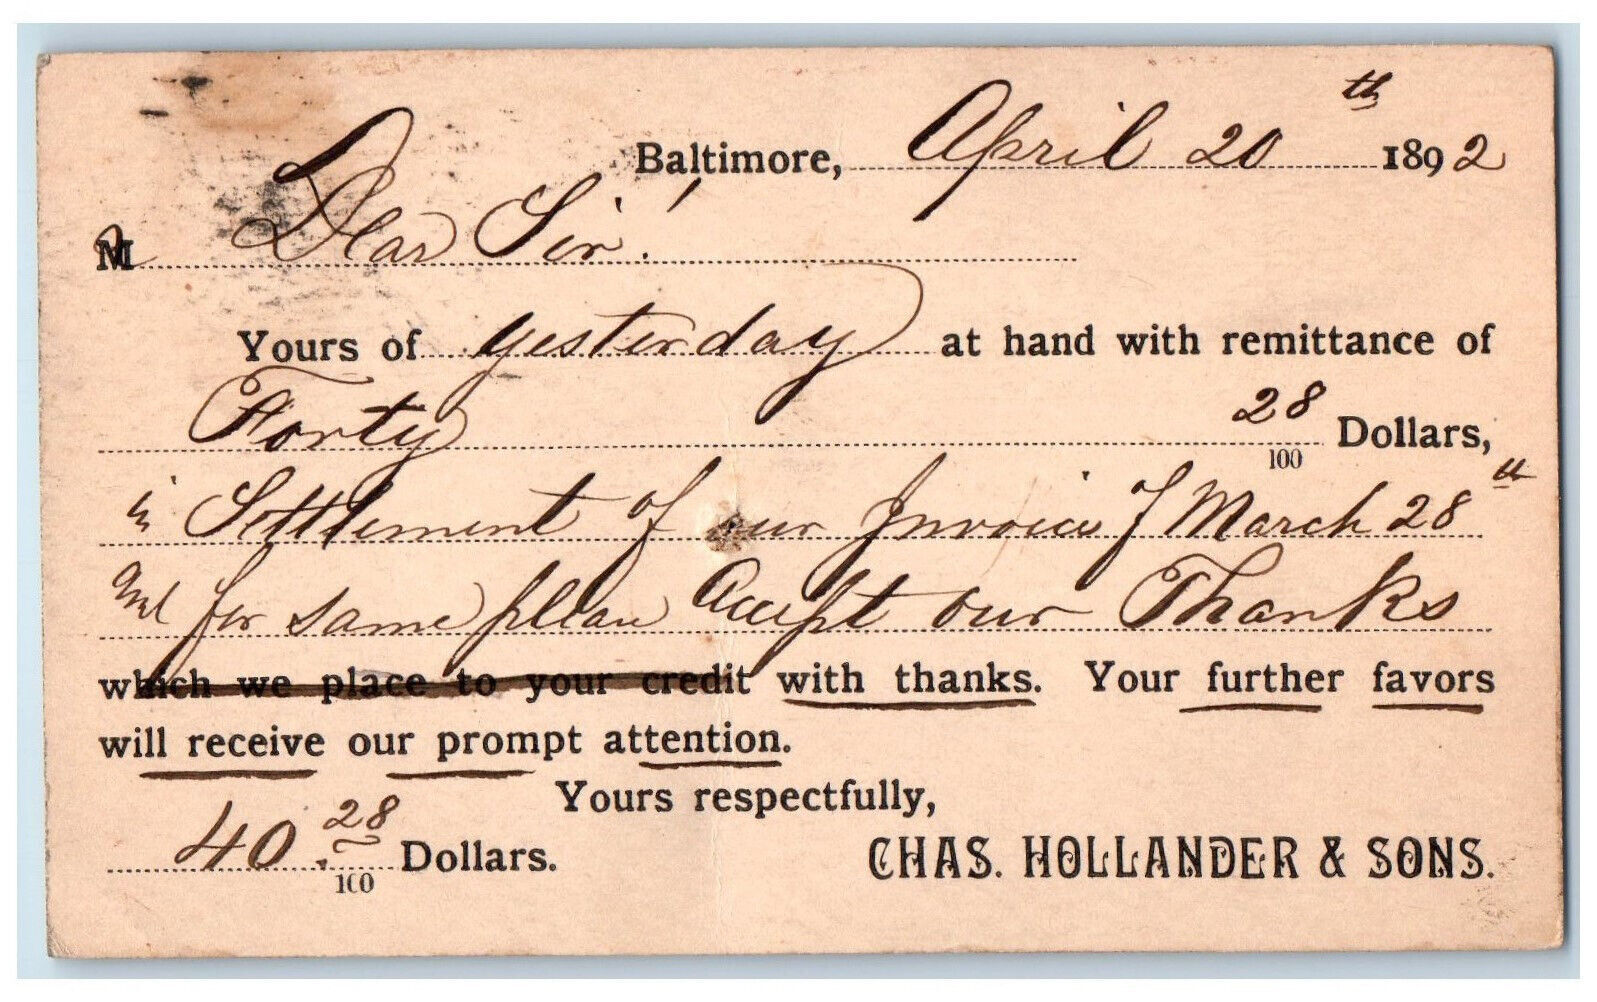 Baltimore, April 20th 1892
M Dear Sir!
Yours of yesterday at hand with remittance of
Forty 28/100 Dollars,
in Settlement of our Invoice of March 28th
for same please Accept our Thanks
which we place to your credit with thanks. Your further favors
will receive our prompt attention.
Yours respectfully,
40.28/100 Dollars.
CHAS. HOLLANDER & SONS.